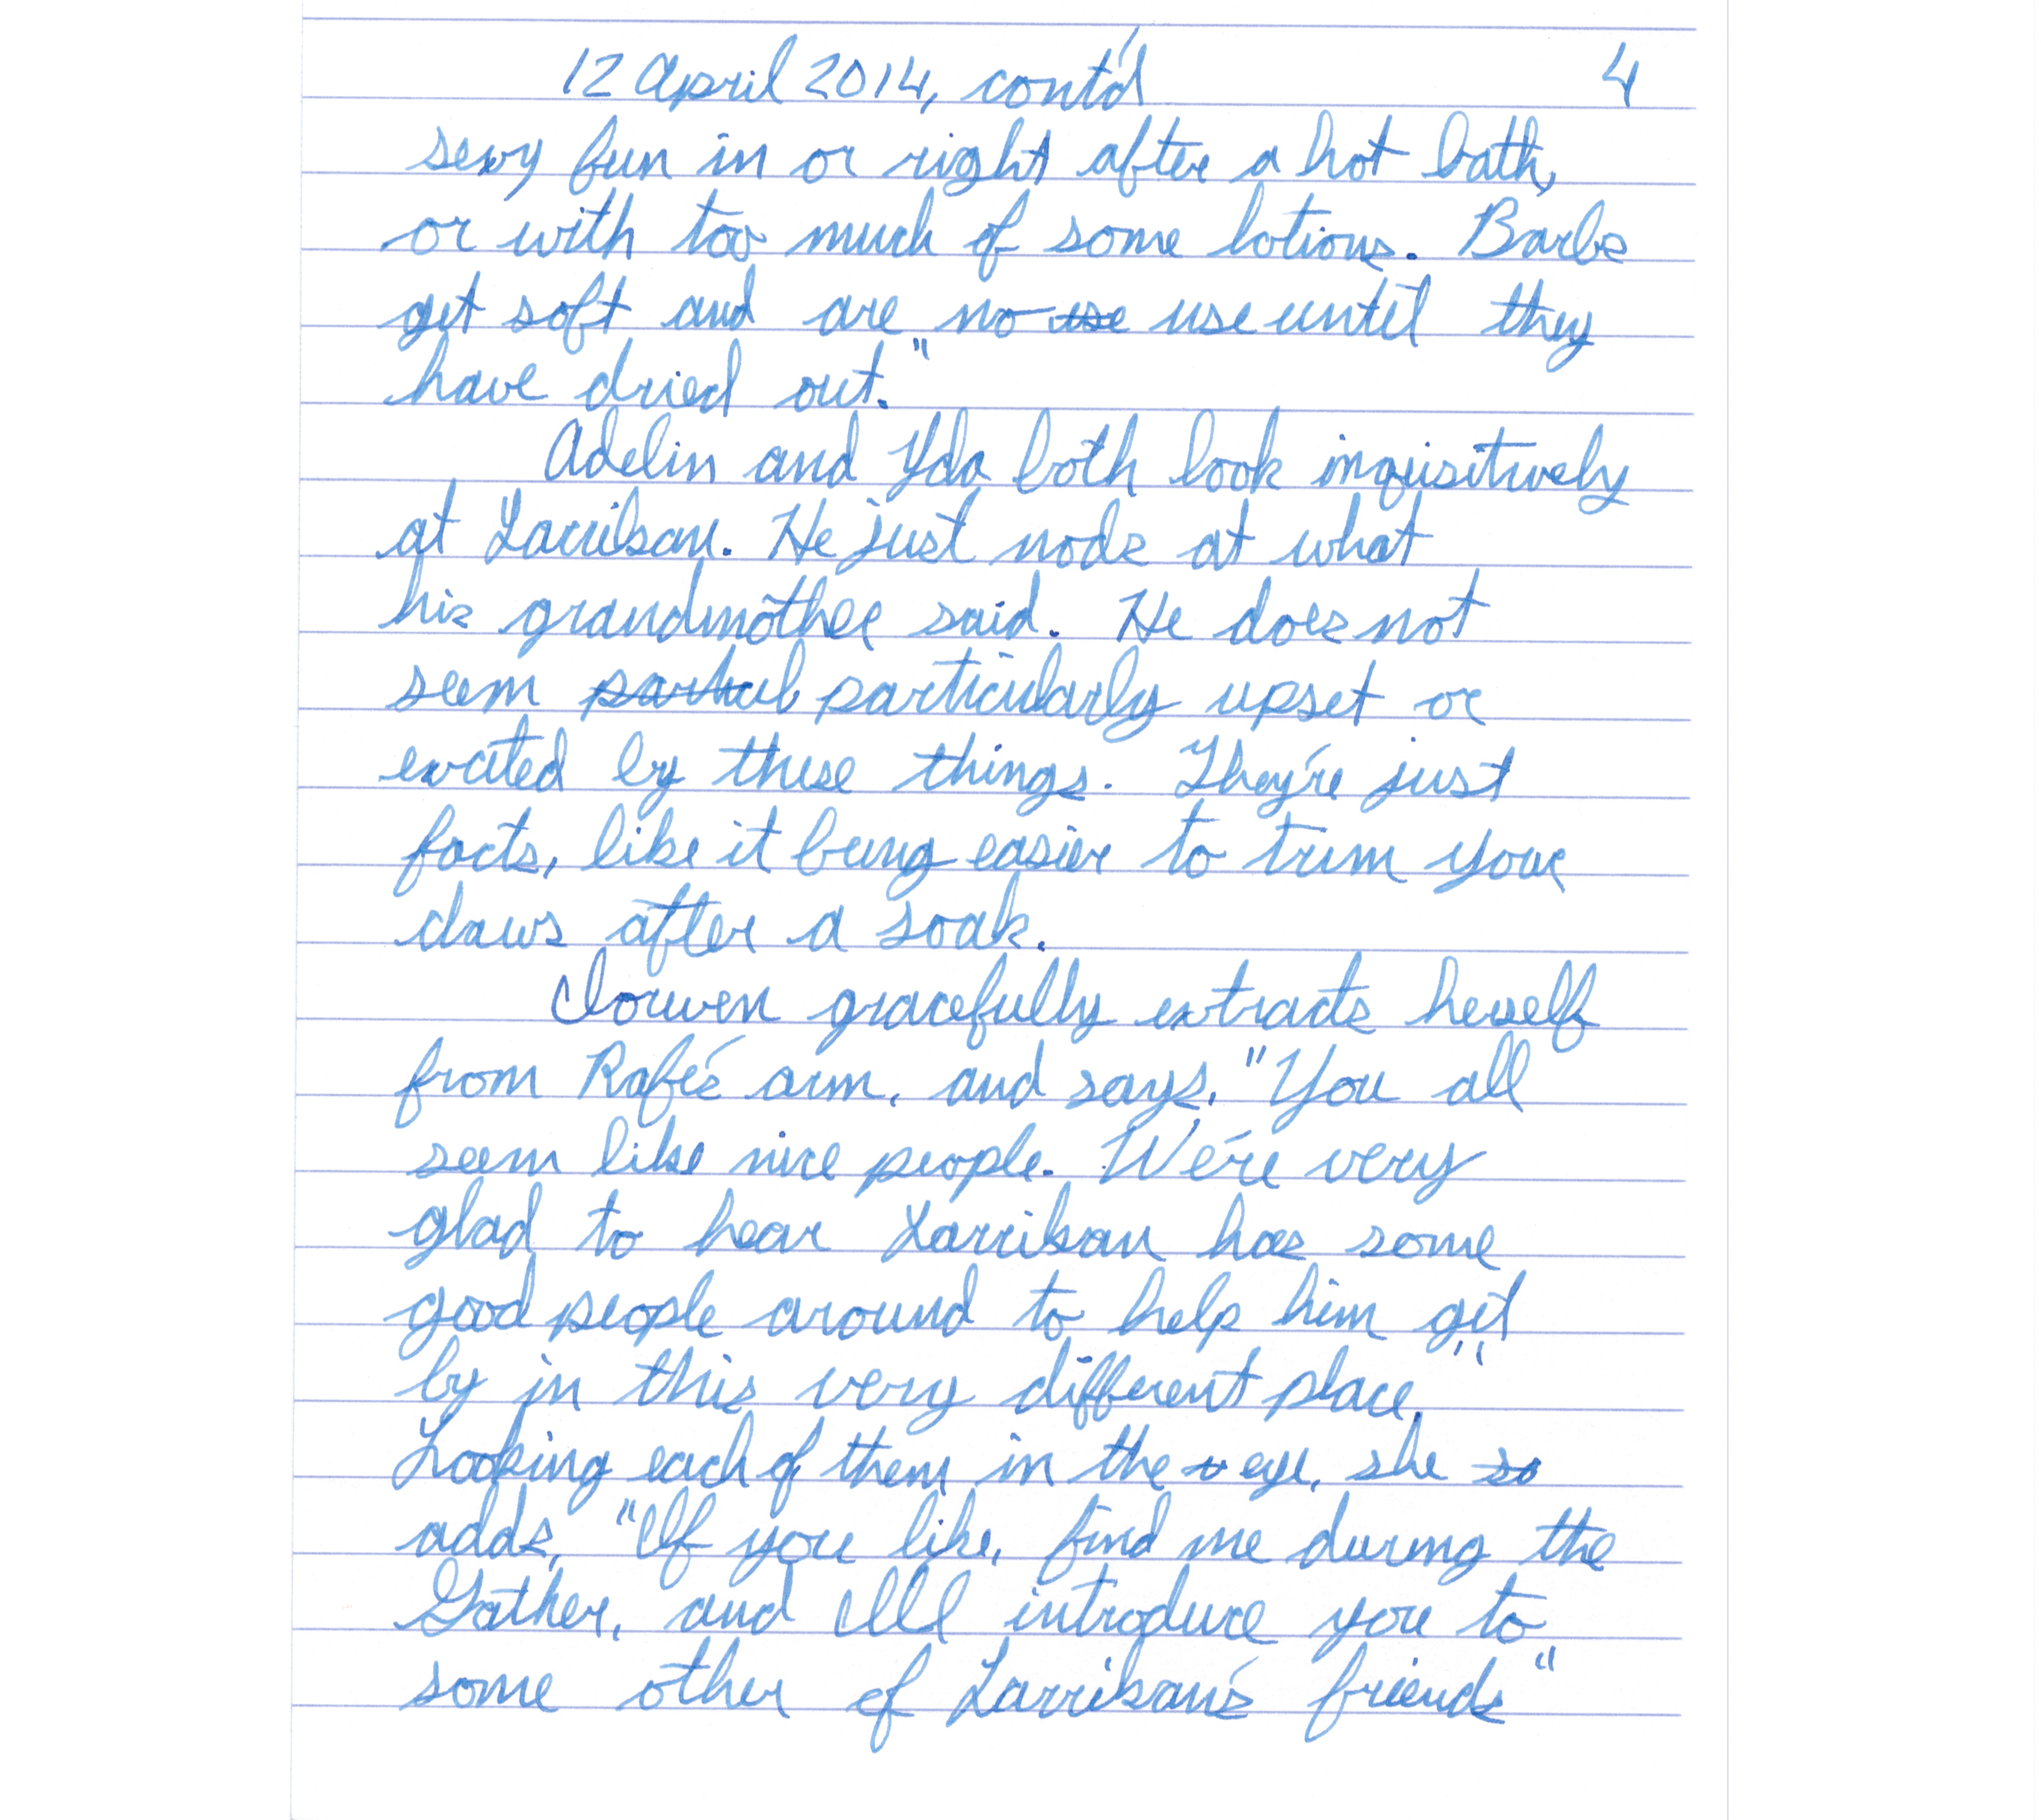 12 April 2014, cont'd 4
sexy fun in or right after a hot bath,
or with too much of some lotions. Barbs
get soft and are no use use until they
have dried out."
Adelin and Yda both look inquisitively
at Larriban. He just nods at what
his grandmother said. He does not
seem particularly upset or
excited by these things. They're just
facts, like it being easier to trim your
claws after a soak.
Iorwen gracefully extracts herself
from Rafe's arm, and says, "You all
seem like nice people. We're very
glad to hear Larriban has some
good people around to help him get
by in this very different place."
Looking each of them in the eye, she so
adds, "If you like, find me during the
Gather, and I'll introduce you to
some other of Larriban's friends"